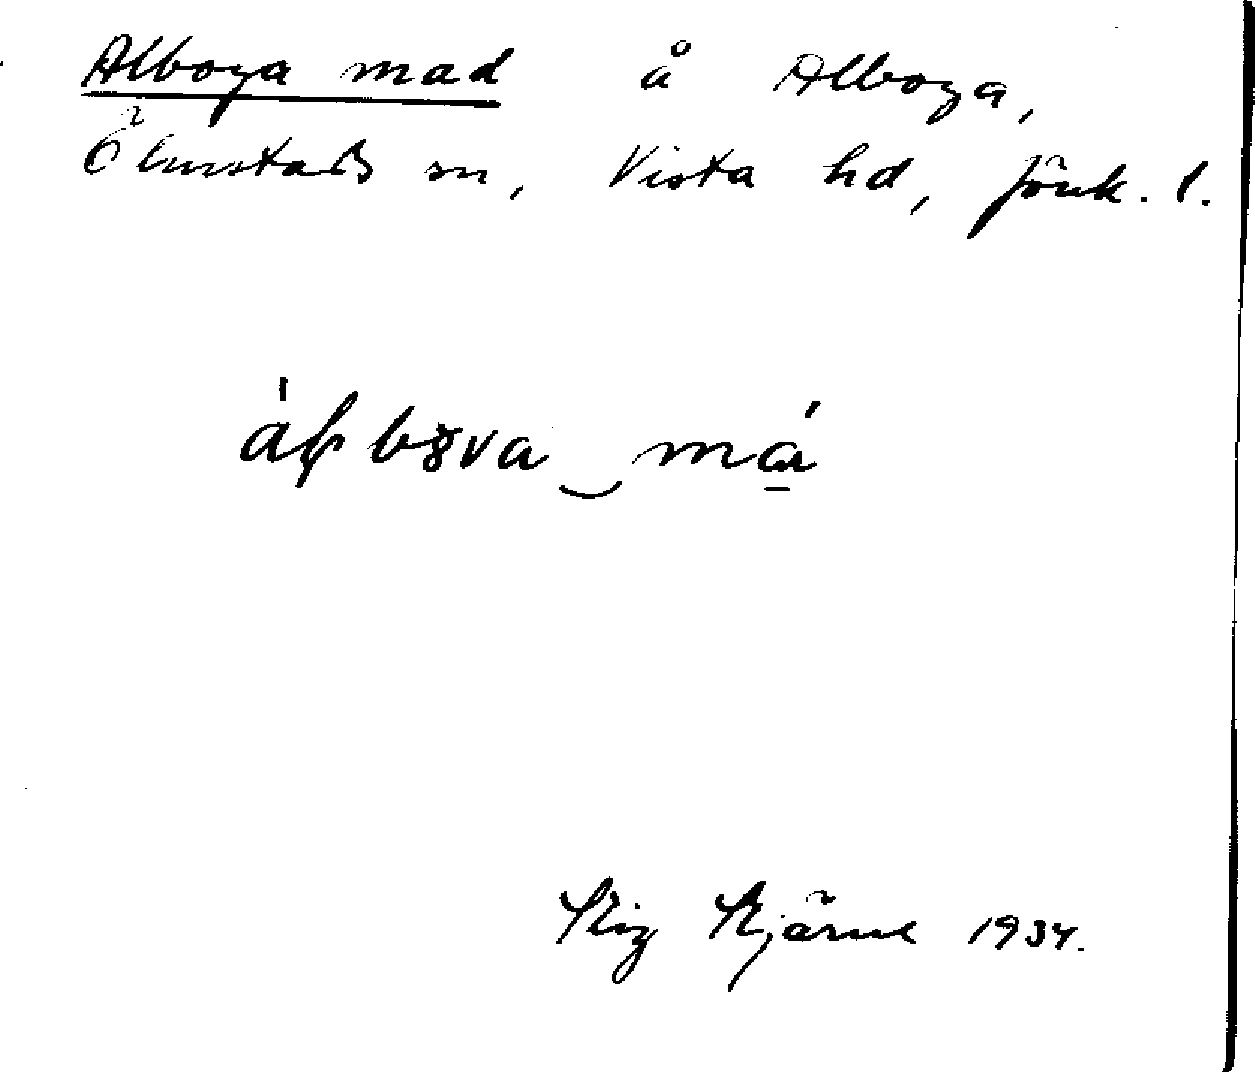 Alboga mad å Alboga,
Ölmstads sn, Vista hd, Jönk. l.
Stig Stjärne 1934.